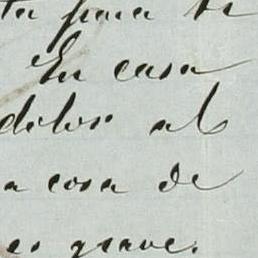 ta para tu
En casa
dolor al
a cosa de
es grave.